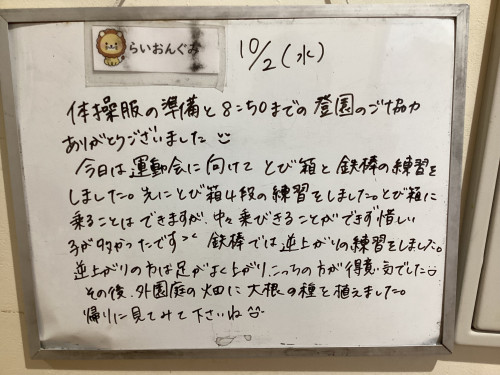 らいおんぐみ
10/2(水)
体操服の準備と8:50までの登園のご協力
ありがとうございました
今日は運動会に向けてとび箱と鉄棒の練習を
しました。先にとび箱4段の練習をしました。とび箱に
乗ることはできますが、中々乗びきることができず惜しい
子が多かったです 鉄棒では逆上がりの練習をしました。
逆上がりの方は足がよく上がり、こっちの方が得意気でした
その後、外園庭の畑に大根の種を植えました。
帰りに見てみて下さいね